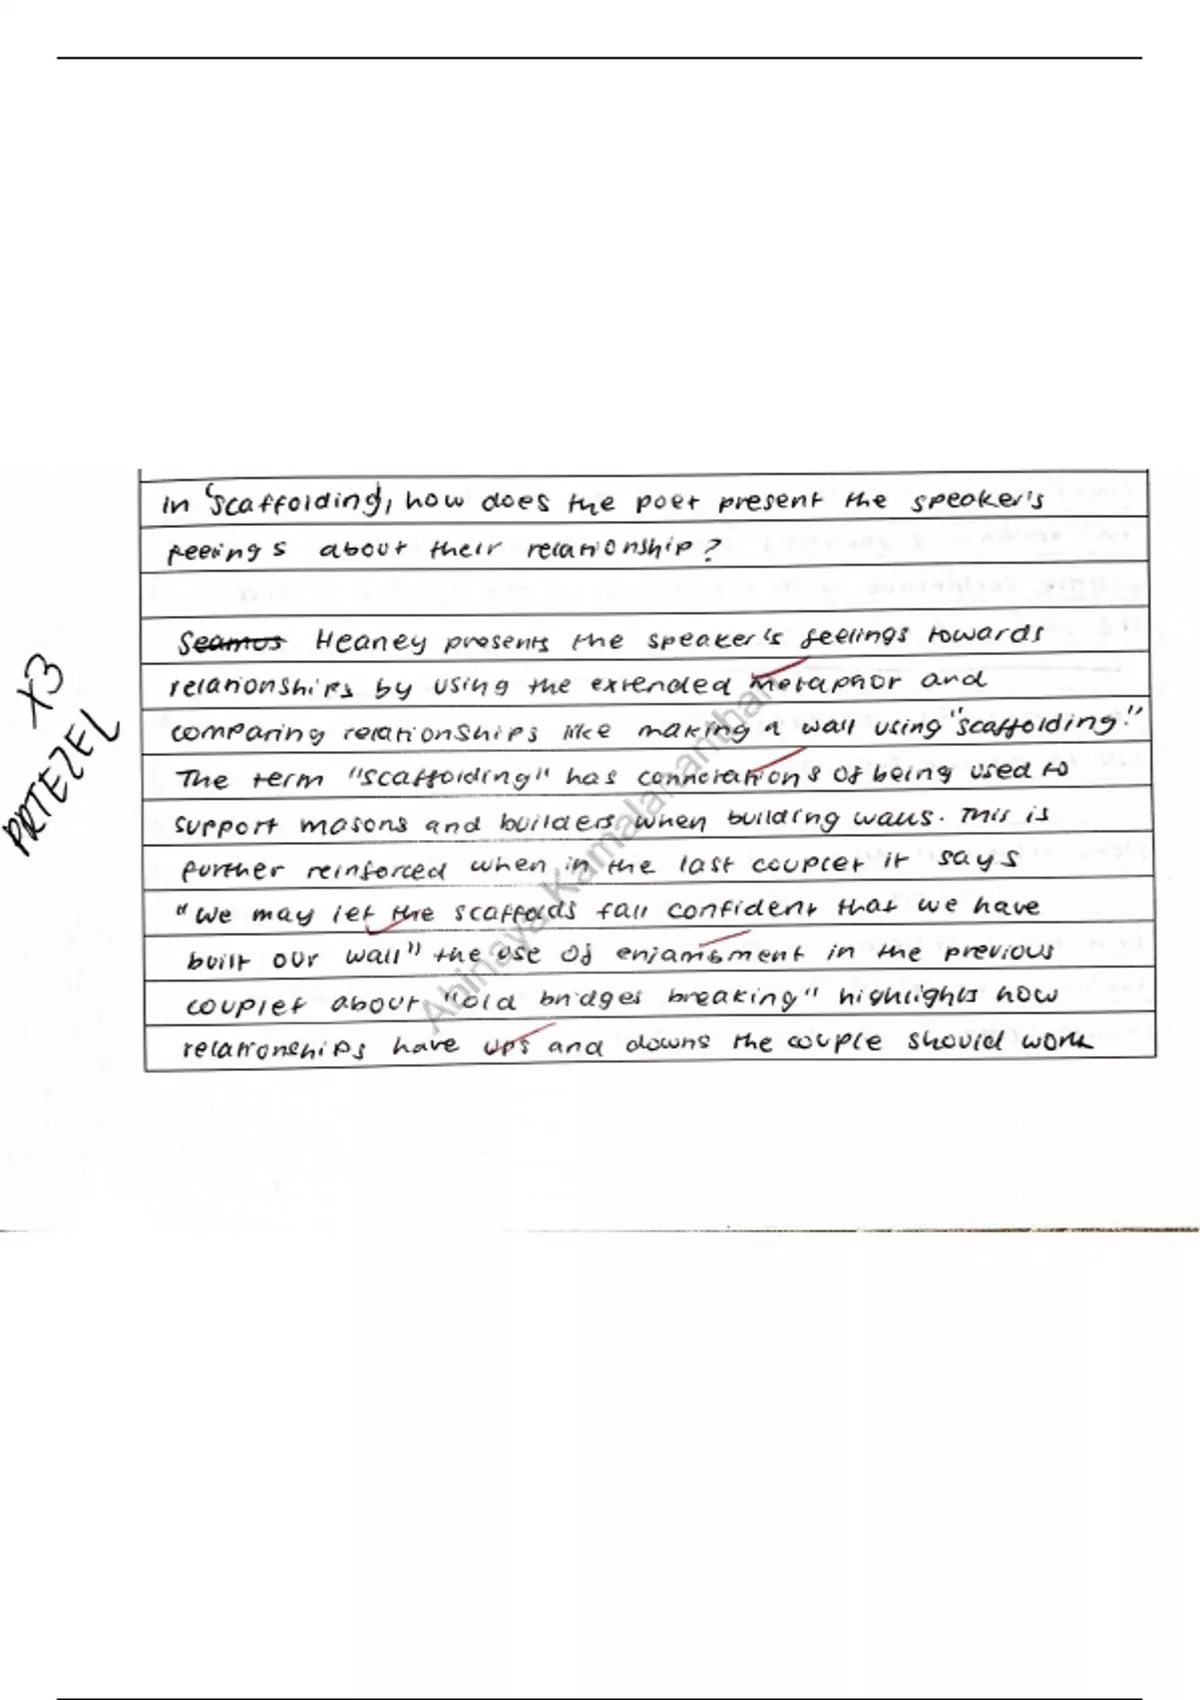 In 'scaffolding', how does the poet present the speaker's
feelings about their relationship?
Seamus Heaney presents the speaker's feelings towards
relationships by using the extended metaphor and
comparing relationships like making a wall using "scaffolding!"
The term "scaffolding" has connotations of being used to
support masons and builders when building walls. This is
further reinforced when in the last couplet it says
"We may let the scaffolds fall confident that we have
built our wall" the use of enjambment in the previous
couplet about "old bridges breaking" highlights how
relationships have ups and downs the couple should work
X3
PRTEZEL
Abinaya Kamalakanthan